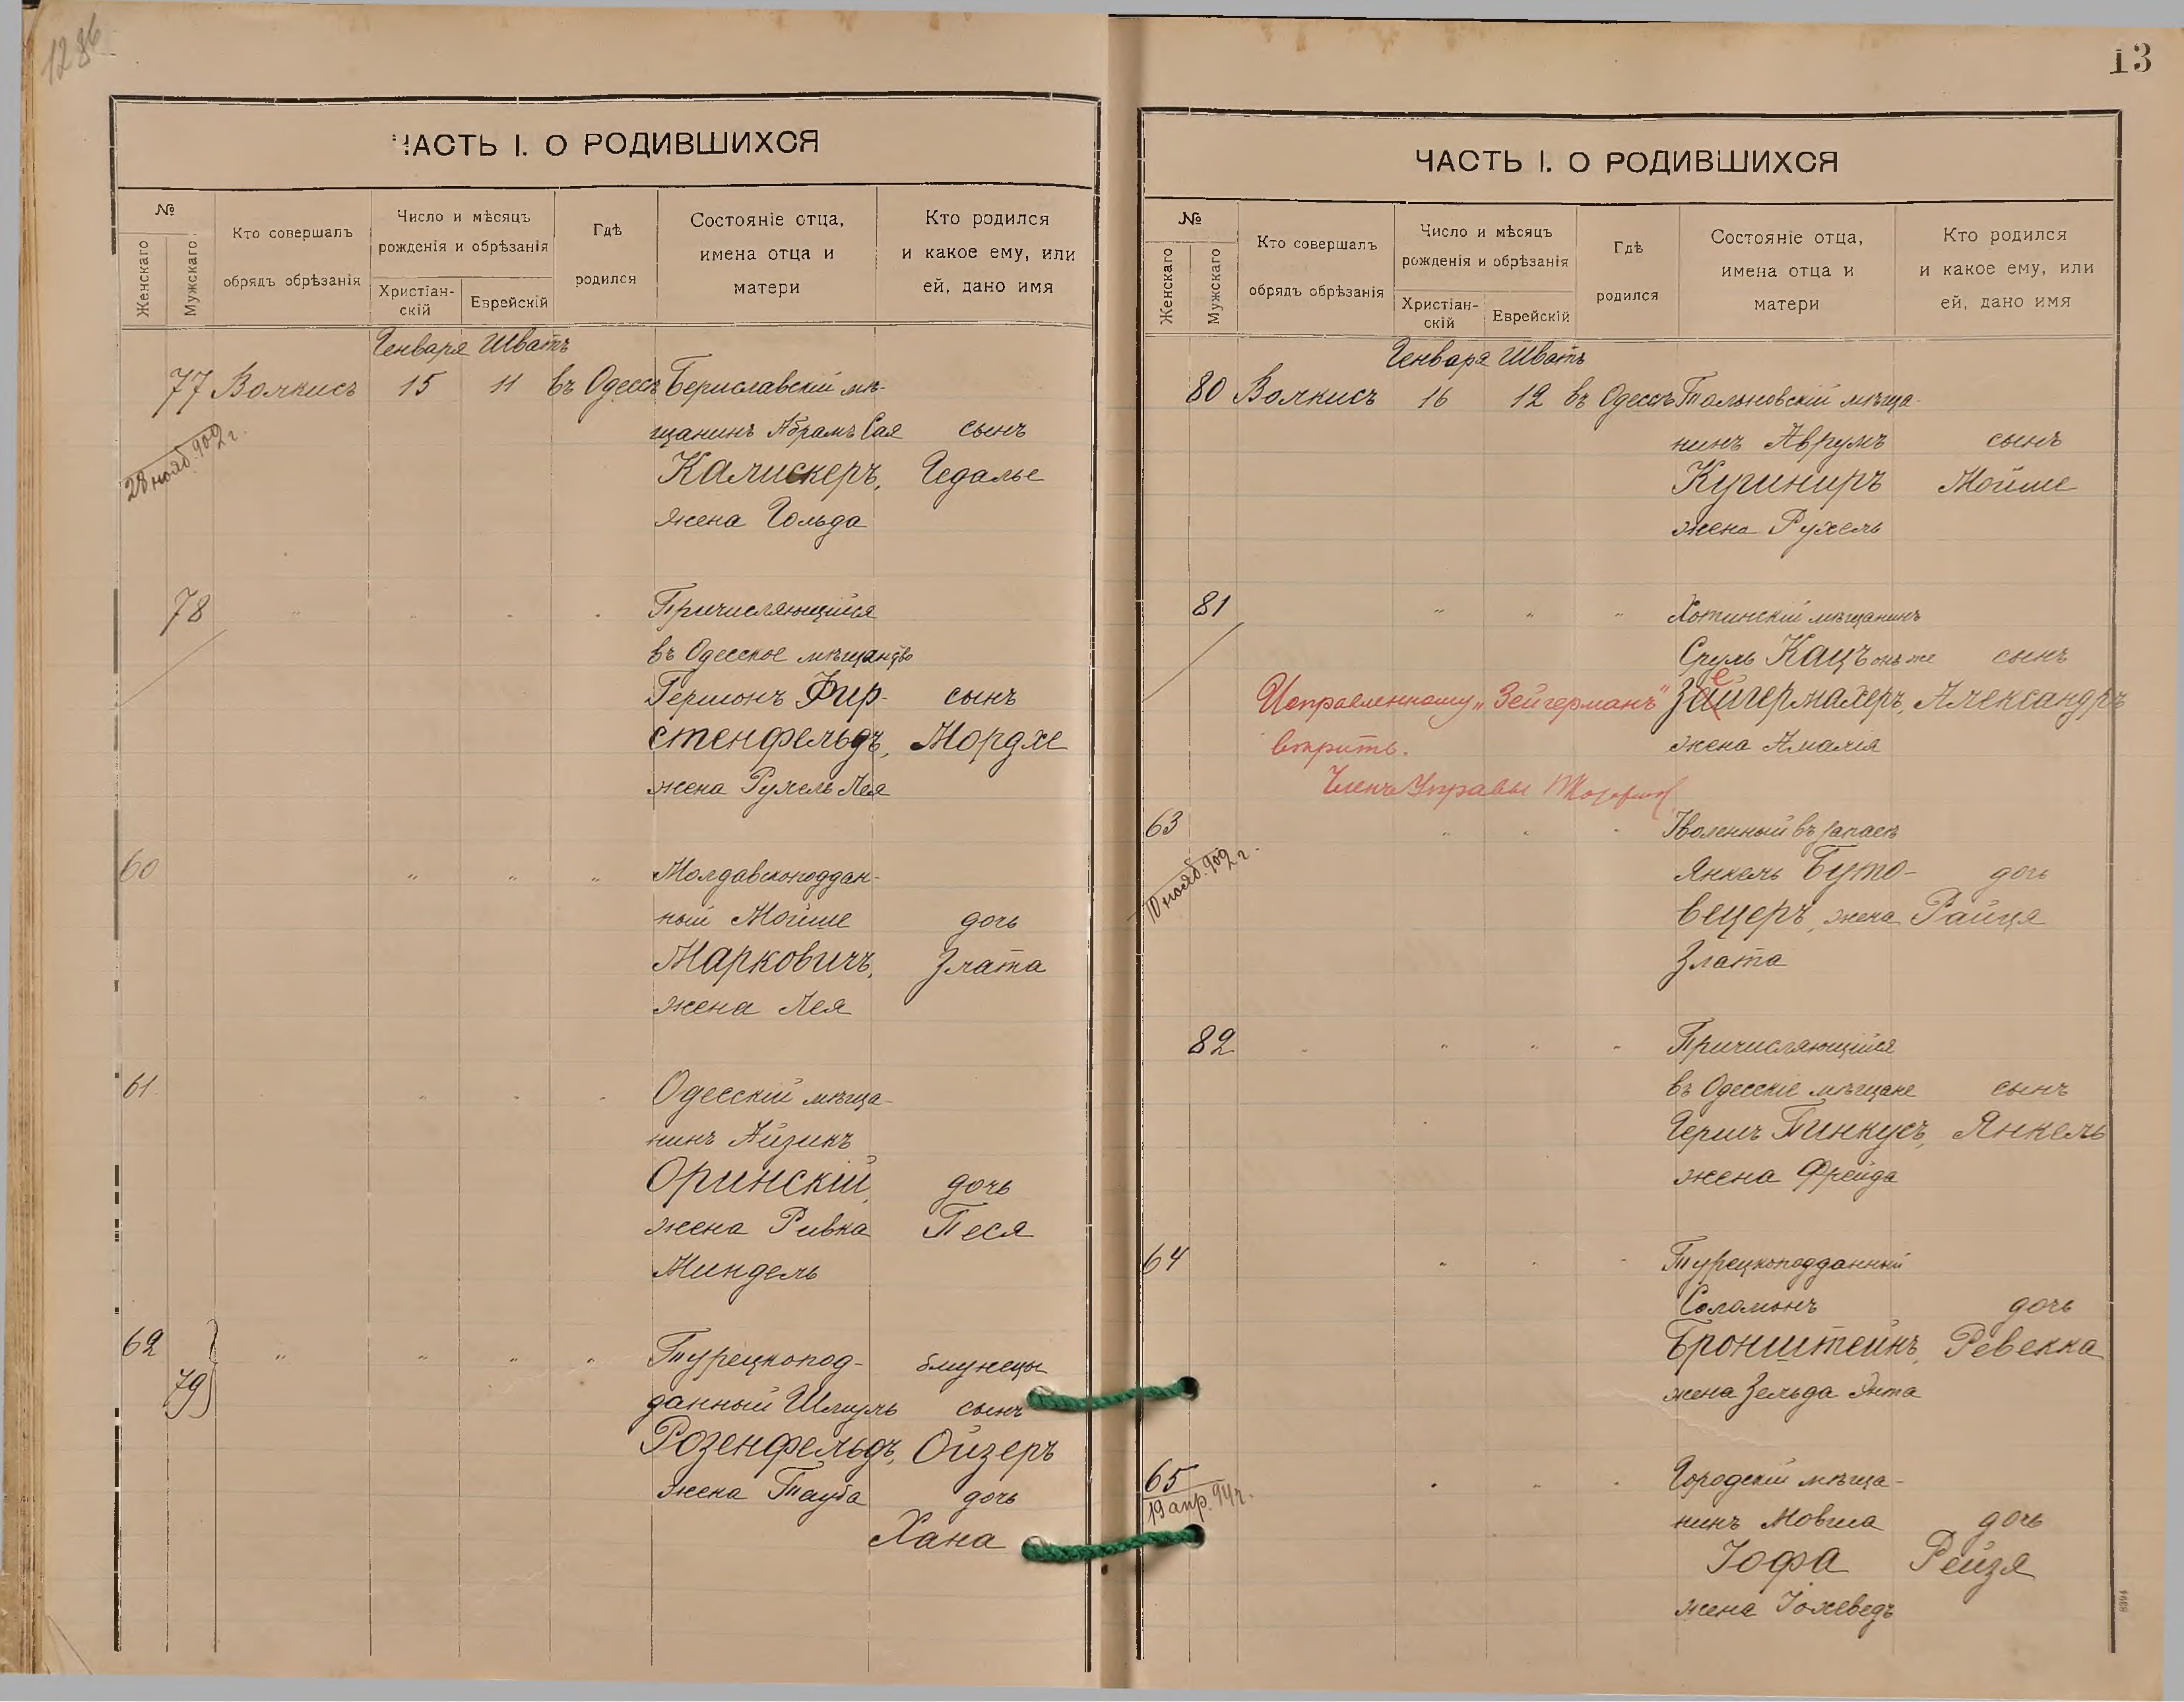 1286
ЧАСТЬ I. О РОДИВШИХСЯ
№
Женскаго
Мужскаго
Кто совершалъ
обрядъ обрѣзанія
Число и мѣсяцъ
рожденія и обрѣзанія
Христіан-
скій
Еврейскій
Гдѣ
родился
Состояніе отца,
имена отца и
матери
Кто родился
и какое ему, или
ей, дано имя
Генваря Шватъ
77 Волкисъ 15 11 въ Одессѣ Бериславскій мѣ-
щанинъ Абрамъ Сая сынъ
28 нояб. 902 г.
Калискеръ, Гедалье
жена Гольда
78 " " " " Причисляющійся
въ Одесское мѣщанство
Гершонъ Фир- сынъ
стенфельдъ, Мордхе
жена Рухель Лея
60 " " " Молдавскоподдан-
ный Мойше дочь
Марковичъ, Злата
жена Лея
61 " " " Одесскій мѣща-
нинъ Айзикъ
Оринскій, дочь
жена Ривка Песя
Миндель
62 " " " " Турецкопод- близнецы
79 данный Шмуль сынъ
Розенфельдъ, Ойзеръ
жена Тауба дочь
Хана
13
ЧАСТЬ I. О РОДИВШИХСЯ
№
Женскаго
Мужскаго
Кто совершалъ
обрядъ обрѣзанія
Число и мѣсяцъ
рожденія и обрѣзанія
Христіан-
скій
Еврейскій
Гдѣ
родился
Состояніе отца,
имена отца и
матери
Кто родился
и какое ему, или
ей, дано имя
Генваря Шватъ
80 Волкисъ 16 12 въ Одессѣ Тальновскій мѣща-
нинъ Аврумъ сынъ
Кушниръ Мойше
жена Рухель
81 " " " Хотинскій мѣщанинъ
Сруль Кацъ онъ же сынъ
Исправленному "Зейгерманъ" Зайгермахеръ, Александръ
вѣрить. жена Амалія
Членъ Управы
63 " " " Уволенный въ запасъ
10 нояб. 902 г.
Янкель Буто- дочь
вецеръ, жена Райця
Злата
82 " " " " Причисляющійся
въ Одесскіе мѣщане сынъ
Гершъ Пинкусъ, Янкель
жена Фрейда
64 " " " Турецкоподданный
Соломонъ дочь
Бронштейнъ, Ревекка
жена Зельда Энта
65 " " " Городскій мѣща-
19 апр. 94 г.
нинъ Мовша дочь
Іофа Рейзя
жена Іохеведъ